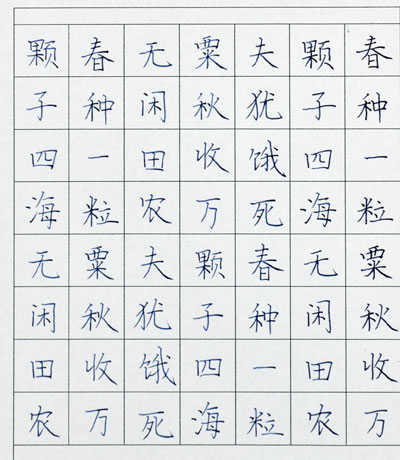 春种一粒粟秋收万
颗子四海无闲田农
夫犹饿死春种一粒
粟秋收万颗子四海
无闲田农夫犹饿死
春种一粒粟秋收万
颗子四海无闲田农